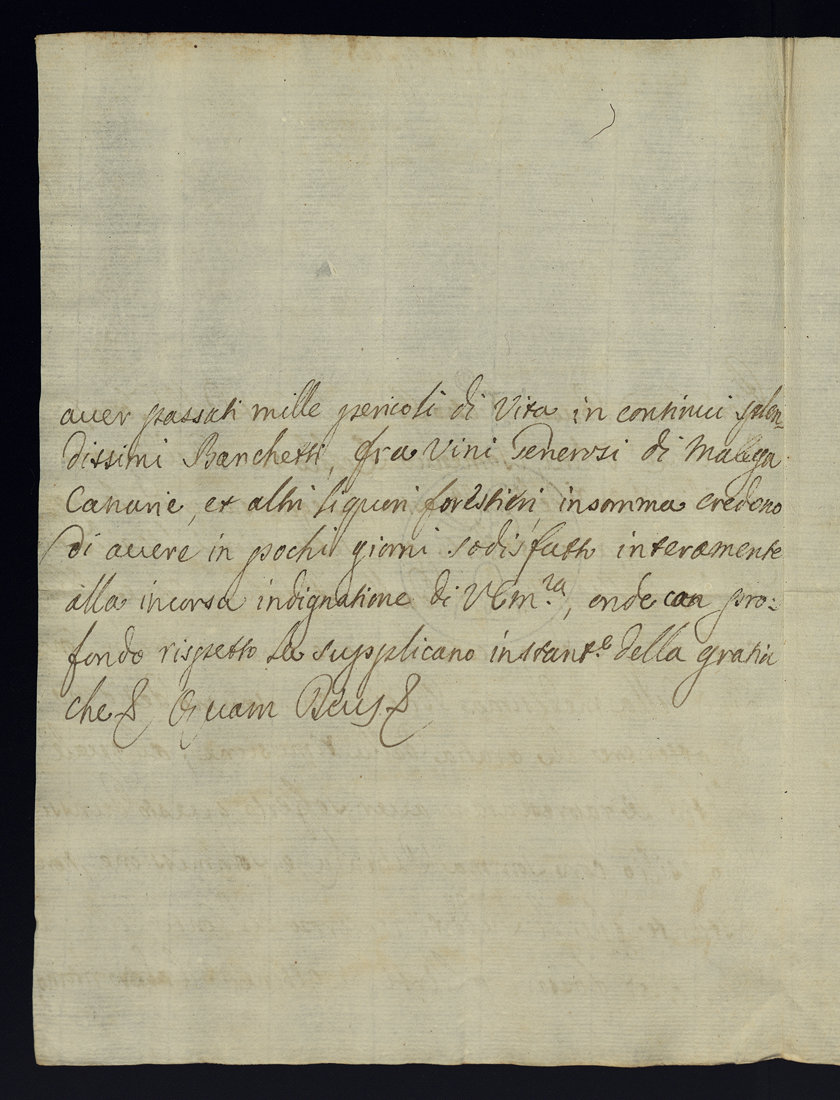 auer passati mille pericoli di Vita in continui splen=
dissimi Banchetti, fra Vini Generosi di Malega
Canarie, et altri liquori forestieri, insomma credono
di auere in pochi giorni sodisfatto interamente
alla incorsa indignatione di VEm.za, onde con pro=
fondo rispetto La supplicano instant.e della gratia
che & Quam Deus &